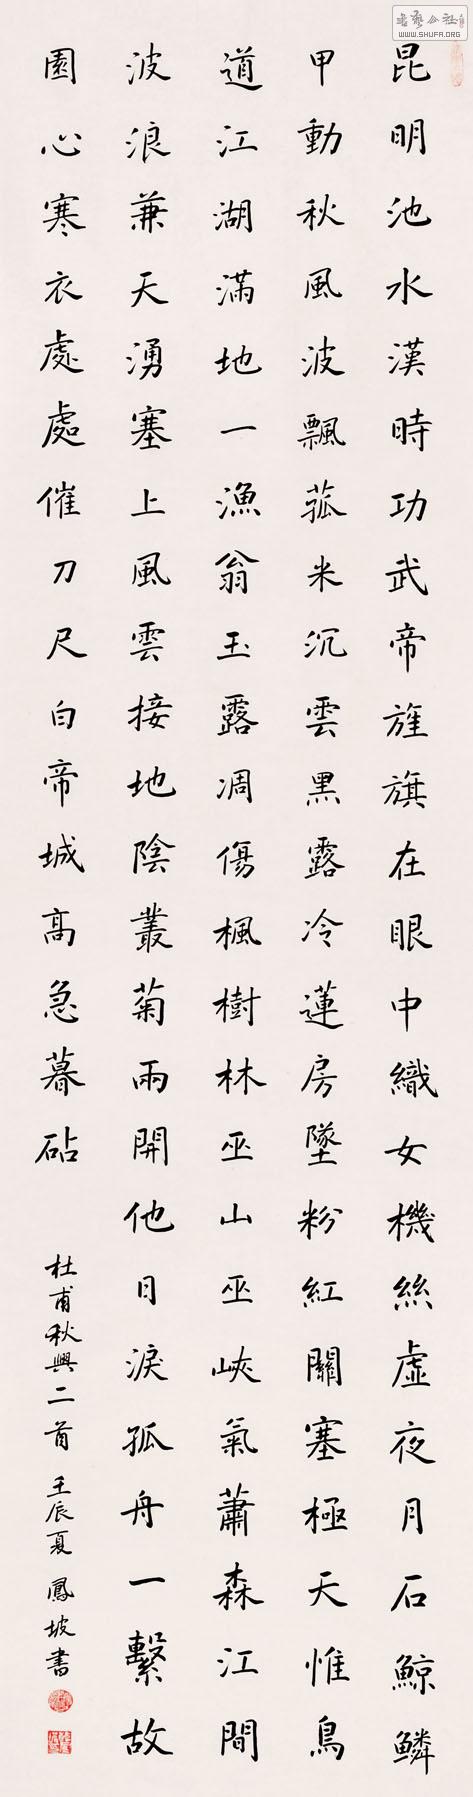 昆明池水漢時功武帝旌旗在眼中織女機絲虛夜月石鯨鱗
甲動秋風波飄菰米沉雲黑露冷蓮房墜粉紅關塞極天惟鳥
道江湖滿地一漁翁玉露凋傷楓樹林巫山巫峽氣蕭森江間
波浪兼天湧塞上風雲接地陰叢菊兩開他日淚孤舟一繫故
園心寒衣處處催刀尺白帝城高急暮砧
杜甫秋興二首 壬辰夏 鳳坡書
書藝公社
WWW.SHUFA.ORG